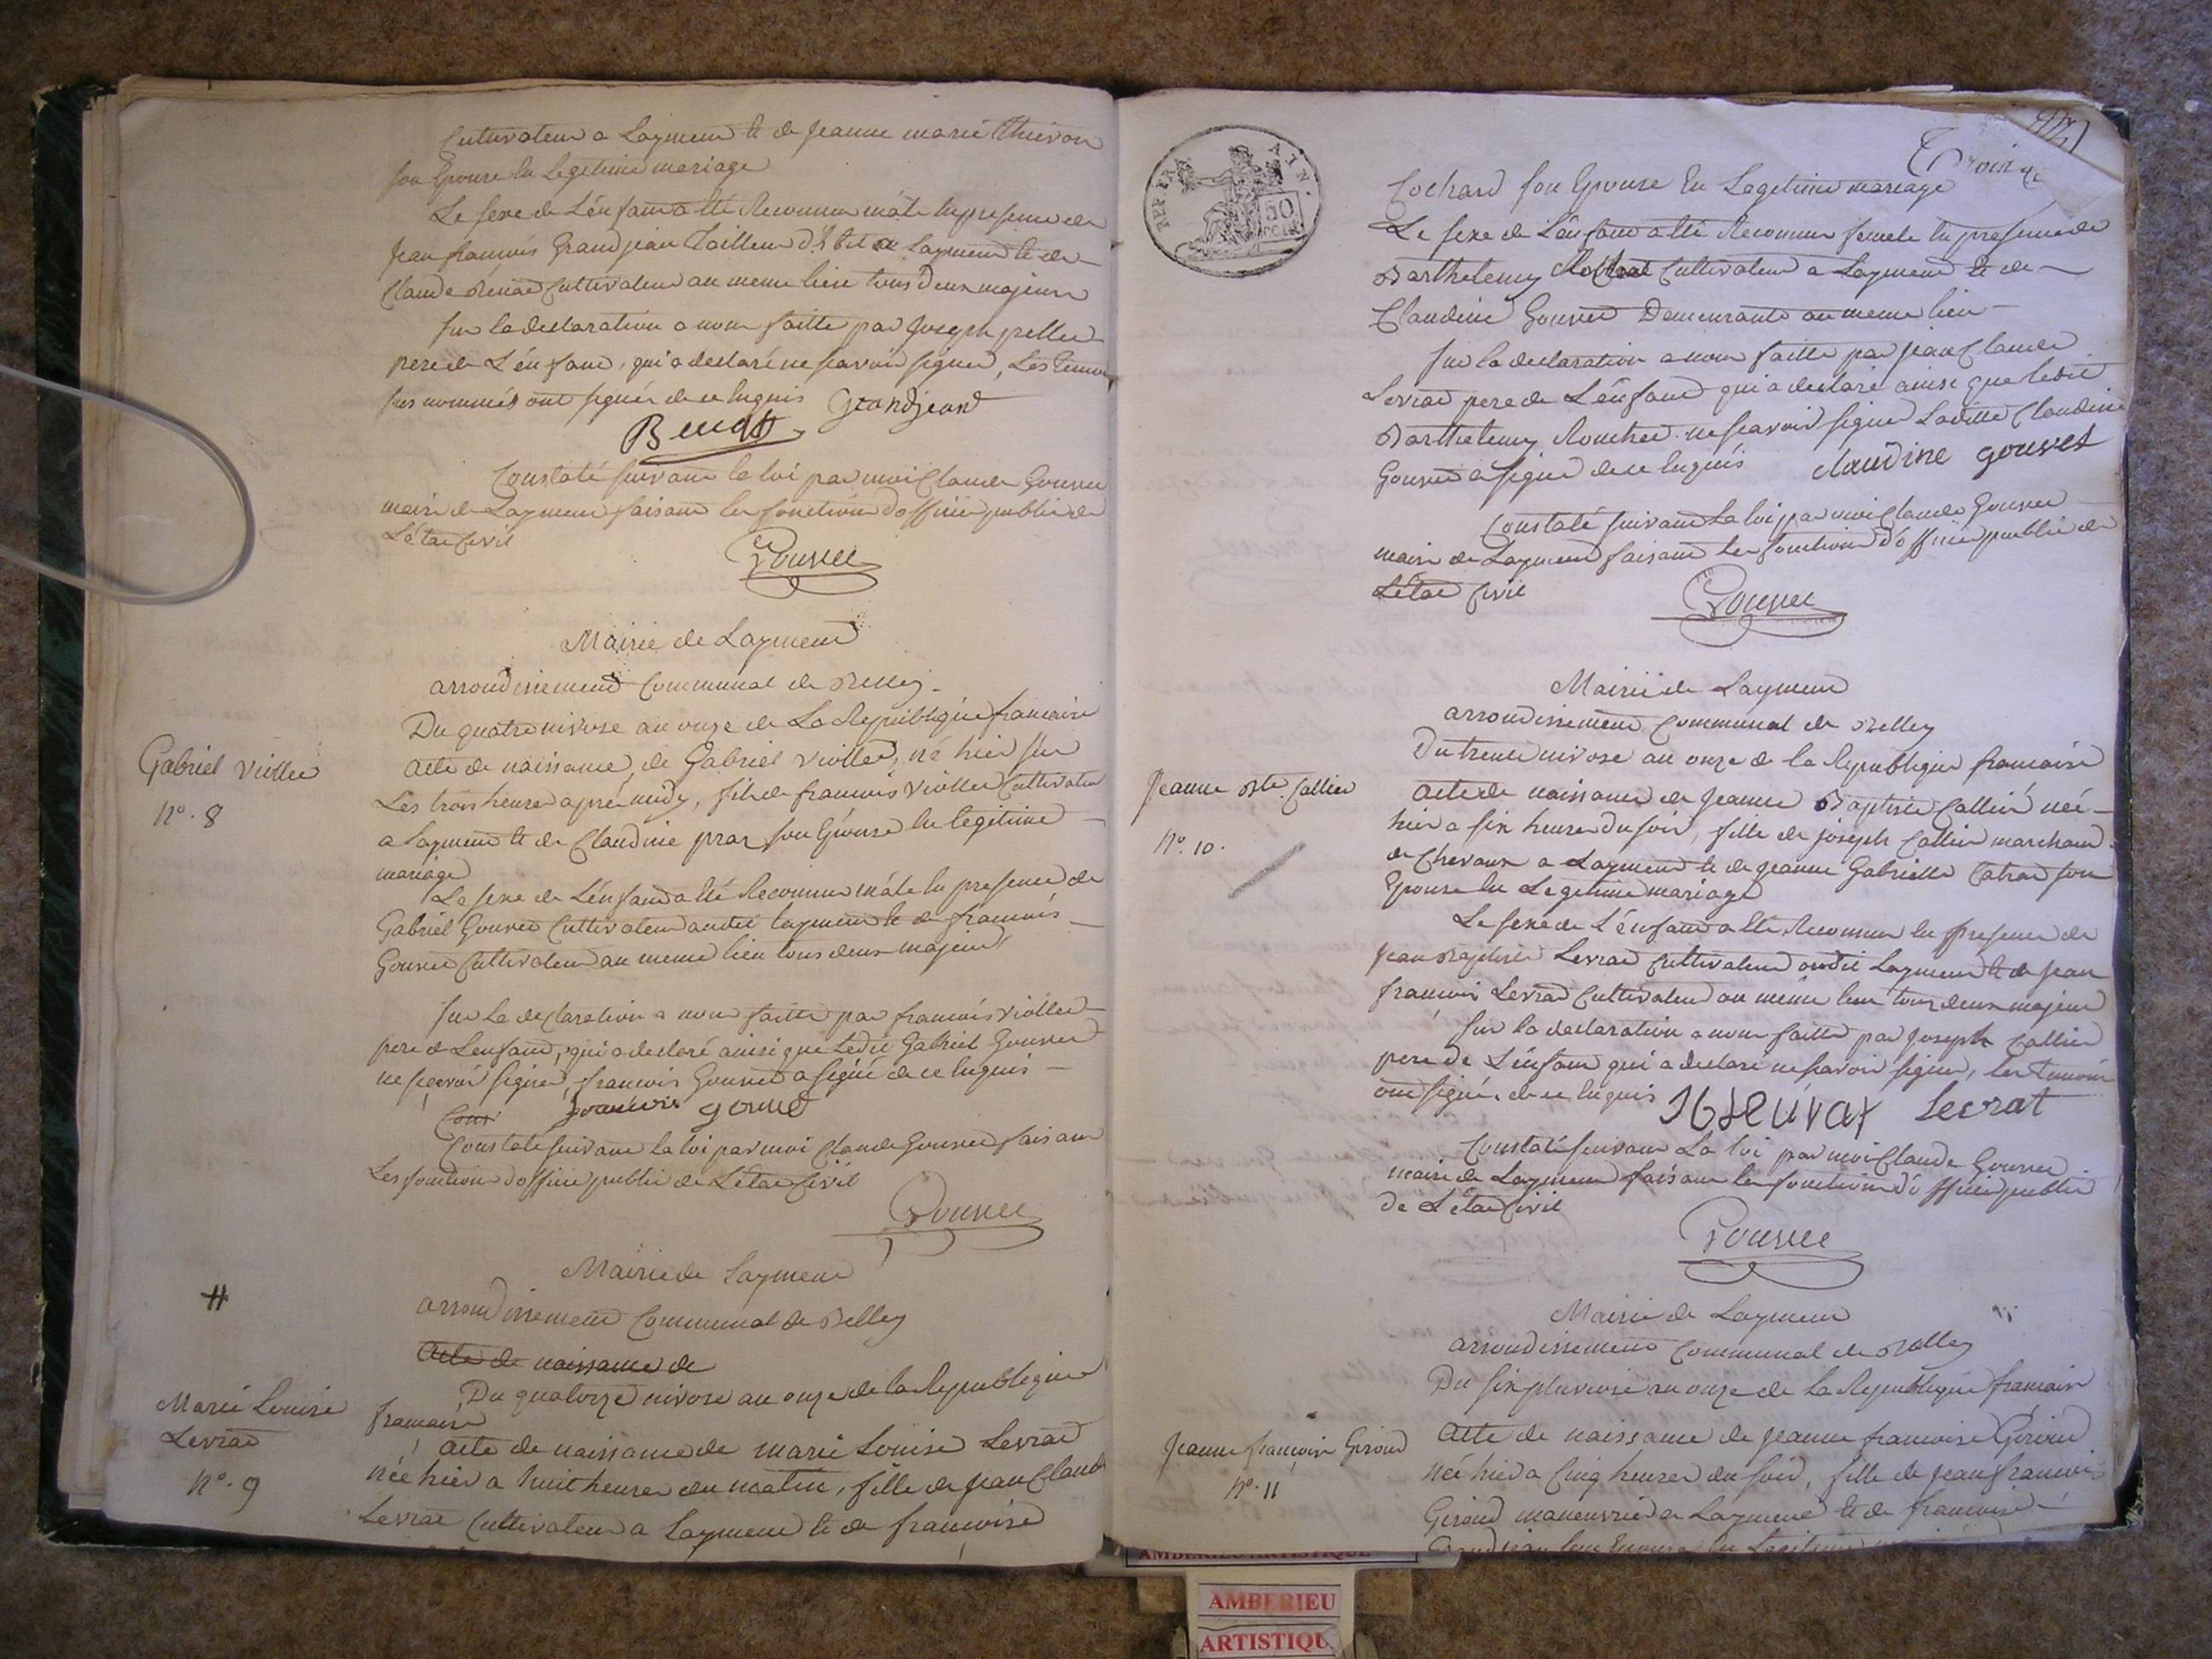 Cultivateur a Laymeut et de jeanne marie Thievon
son Epouse En Legetime mariage
Le sexe de L'énfant a été Reconnu mâle En presence de
Jean françois Grand jean Tailleur d'abit a Laymeut et de
Claude Benoit Cultivateur au meme lieu tous Deux majeurs
Sur la declaration a nous faitte par Joseph pellet
pere de L'énfant, qui a declaré ne sçavoir signer, Les temoins
sus nommés ont signés de ce Enquis Grandjeant
Benoit
Constaté suivant la loi par moi Claude Gouvet
maire de Laymeut faisant les fonctions d'officier public de
L'état Civil
Gouvet
Mairie de Laymeut
arrondissement Communal de Belley
Du quatre nivose an onze de La Republique francaise
Gabriel Viollet
N°. 8
acte de naissance, de Gabriel Viollet, né hier sur
Les trois heures aprés midy, fils de francois Viollet Cultivateur
a Laymeut et de Claudine praz son Epouse En legitime
mariage
Le sexe de L'énfant a été Reconnu mâle En presence de
Gabriel Gouvet Cultivateur audit Laymeut et de francois
Gouvet Cultivateur au meme lieu tous deux majeurs
Sur La declaration a nous faitte par francois Viollet
pere de Lenfant, qui a declaré ainsi que Ledit Gabriel Gouvet
ne sçavoir signer, francois Gouvet a signé de ce Enquis
Cons francois gouvet
Constaté suivant la loi par moi Claude Gouvet faisant
Les fonctions d'officier public de L'état Civil
Gouvet
Mairie de Laymeut
arrondissement Communal de Belley
acte de naissance de
Du quatorze nivose an onze de la Republique
francaise
Marie Louise
Levrat
N°. 9
acte de naissance de marie Louise Levrat
née hier a huit heures du matin, fille de jean Claude
Levrat Cultivateur a Laymeut et de francoise
Cochard son Epouse En Legetime mariage
Le sexe de L'énfant a été Reconnu femele En presence de
Barthelemy Cultivateur a Laymeut et de
Claudine Gouvet Demeurante au meme lieu
Sur la declaration a nous faitte par jean Claude
Levrat pere de L'énfant qui a declaré ainsi que ledit
Barthelemy ne sçavoir signer Laditte Claudine
Gouvet a signé de ce Enquis claudine gouvet
Constaté suivant La loi par moi Claude Gouvet
maire de Laymeut faisant les fonctions d'officier public de
L'état Civil
Gouvet
Mairie de Laymeut
arrondissement Communal de Belley
Du trente nivose an onze de la Republique francaise
Jeanne Bte. Callier
N°. 10.
acte de naissance de Jeanne Baptiste Callier née
hier a six heures du soir, fille de joseph Callier marchand
de Chevaux a Laymeut et de jeanne Gabrielle son
Epouse En Legetime mariage
Le sexe de L'énfant a été Reconnu En presence de
Jean Baptiste Levrat Cultivateur audit Laymeut et de jean
francois Levrat Cultivateur au méme lieu tous deux majeurs
Sur la declaration a nous faitte par Joseph Callier
pere de L'énfant qui a declaré ne sçavoir signer, les temoins
ont signé de ce Enquis Levrat
Constaté suivant La loi par moi Claude Gouvet
maire de Laymeut faisant les fonctions d'officier public
de L'état Civil
Gouvet
Mairie de Laymeut
arrondissement Communal de Belley
Du six pluviose an onze de La Republique francaise
Jeanne françoise Giroud
N°. 11
Acte de naissance de jeanne francoise Giroud
née hier a Cinq heures du soir, fille de jean francois
Giroud manouvrier a Laymeut et de francoise
Grandjean son Epouse En Legitime
50
AMBERIEU ARTISTIQUE
AMBERIEU
ARTISTIQU